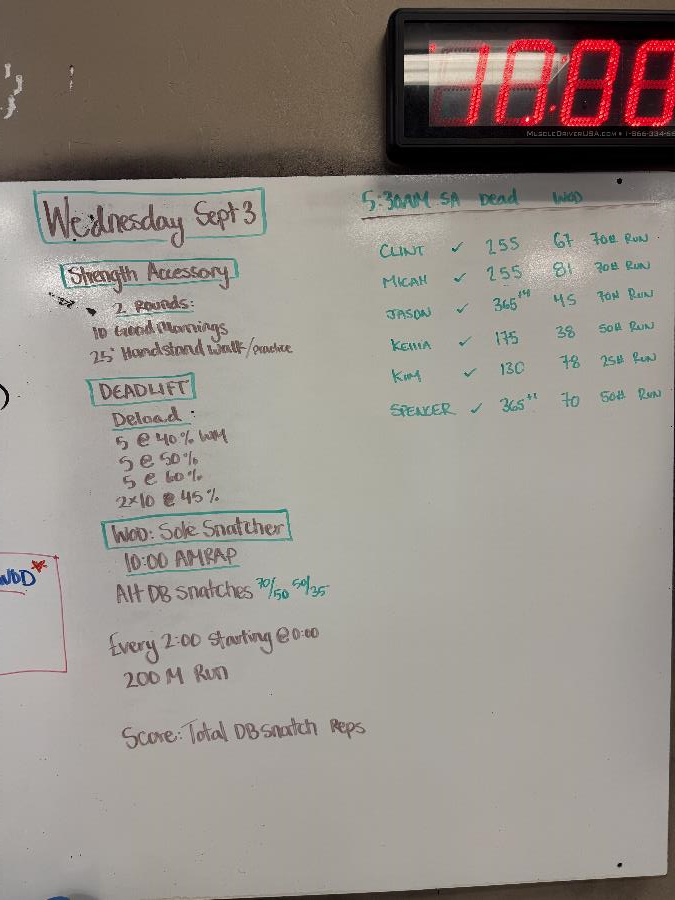 10:88
MUSCLEDRIVERUSA.COM • 1-866-334-
Wednesday Sept 3
Strength Accessory
2 Rounds:
10 Good Mornings
25' Handstand Walk/practice
DEADLIFT
Deload:
5 @ 40% WM
5 @ 50%
5 @ 60%
2x10 @ 45%
WOD: Sole Snatcher
10:00 AMRAP
Alt DB snatches 70/50 50/35
Every 2:00 starting @ 0:00
200 M Run
Score: Total DB snatch Reps
5:30AM SA Dead WOD
CLINT ✓ 255 67 70# RUN
MICAH ✓ 255 81 70# RUN
JASON ✓ 365 45 70# RUN
✓ 175 38 50# RUN
KIM ✓ 130 78 25# RUN
SPENCER ✓ 365 70 50# RUN
WOD*